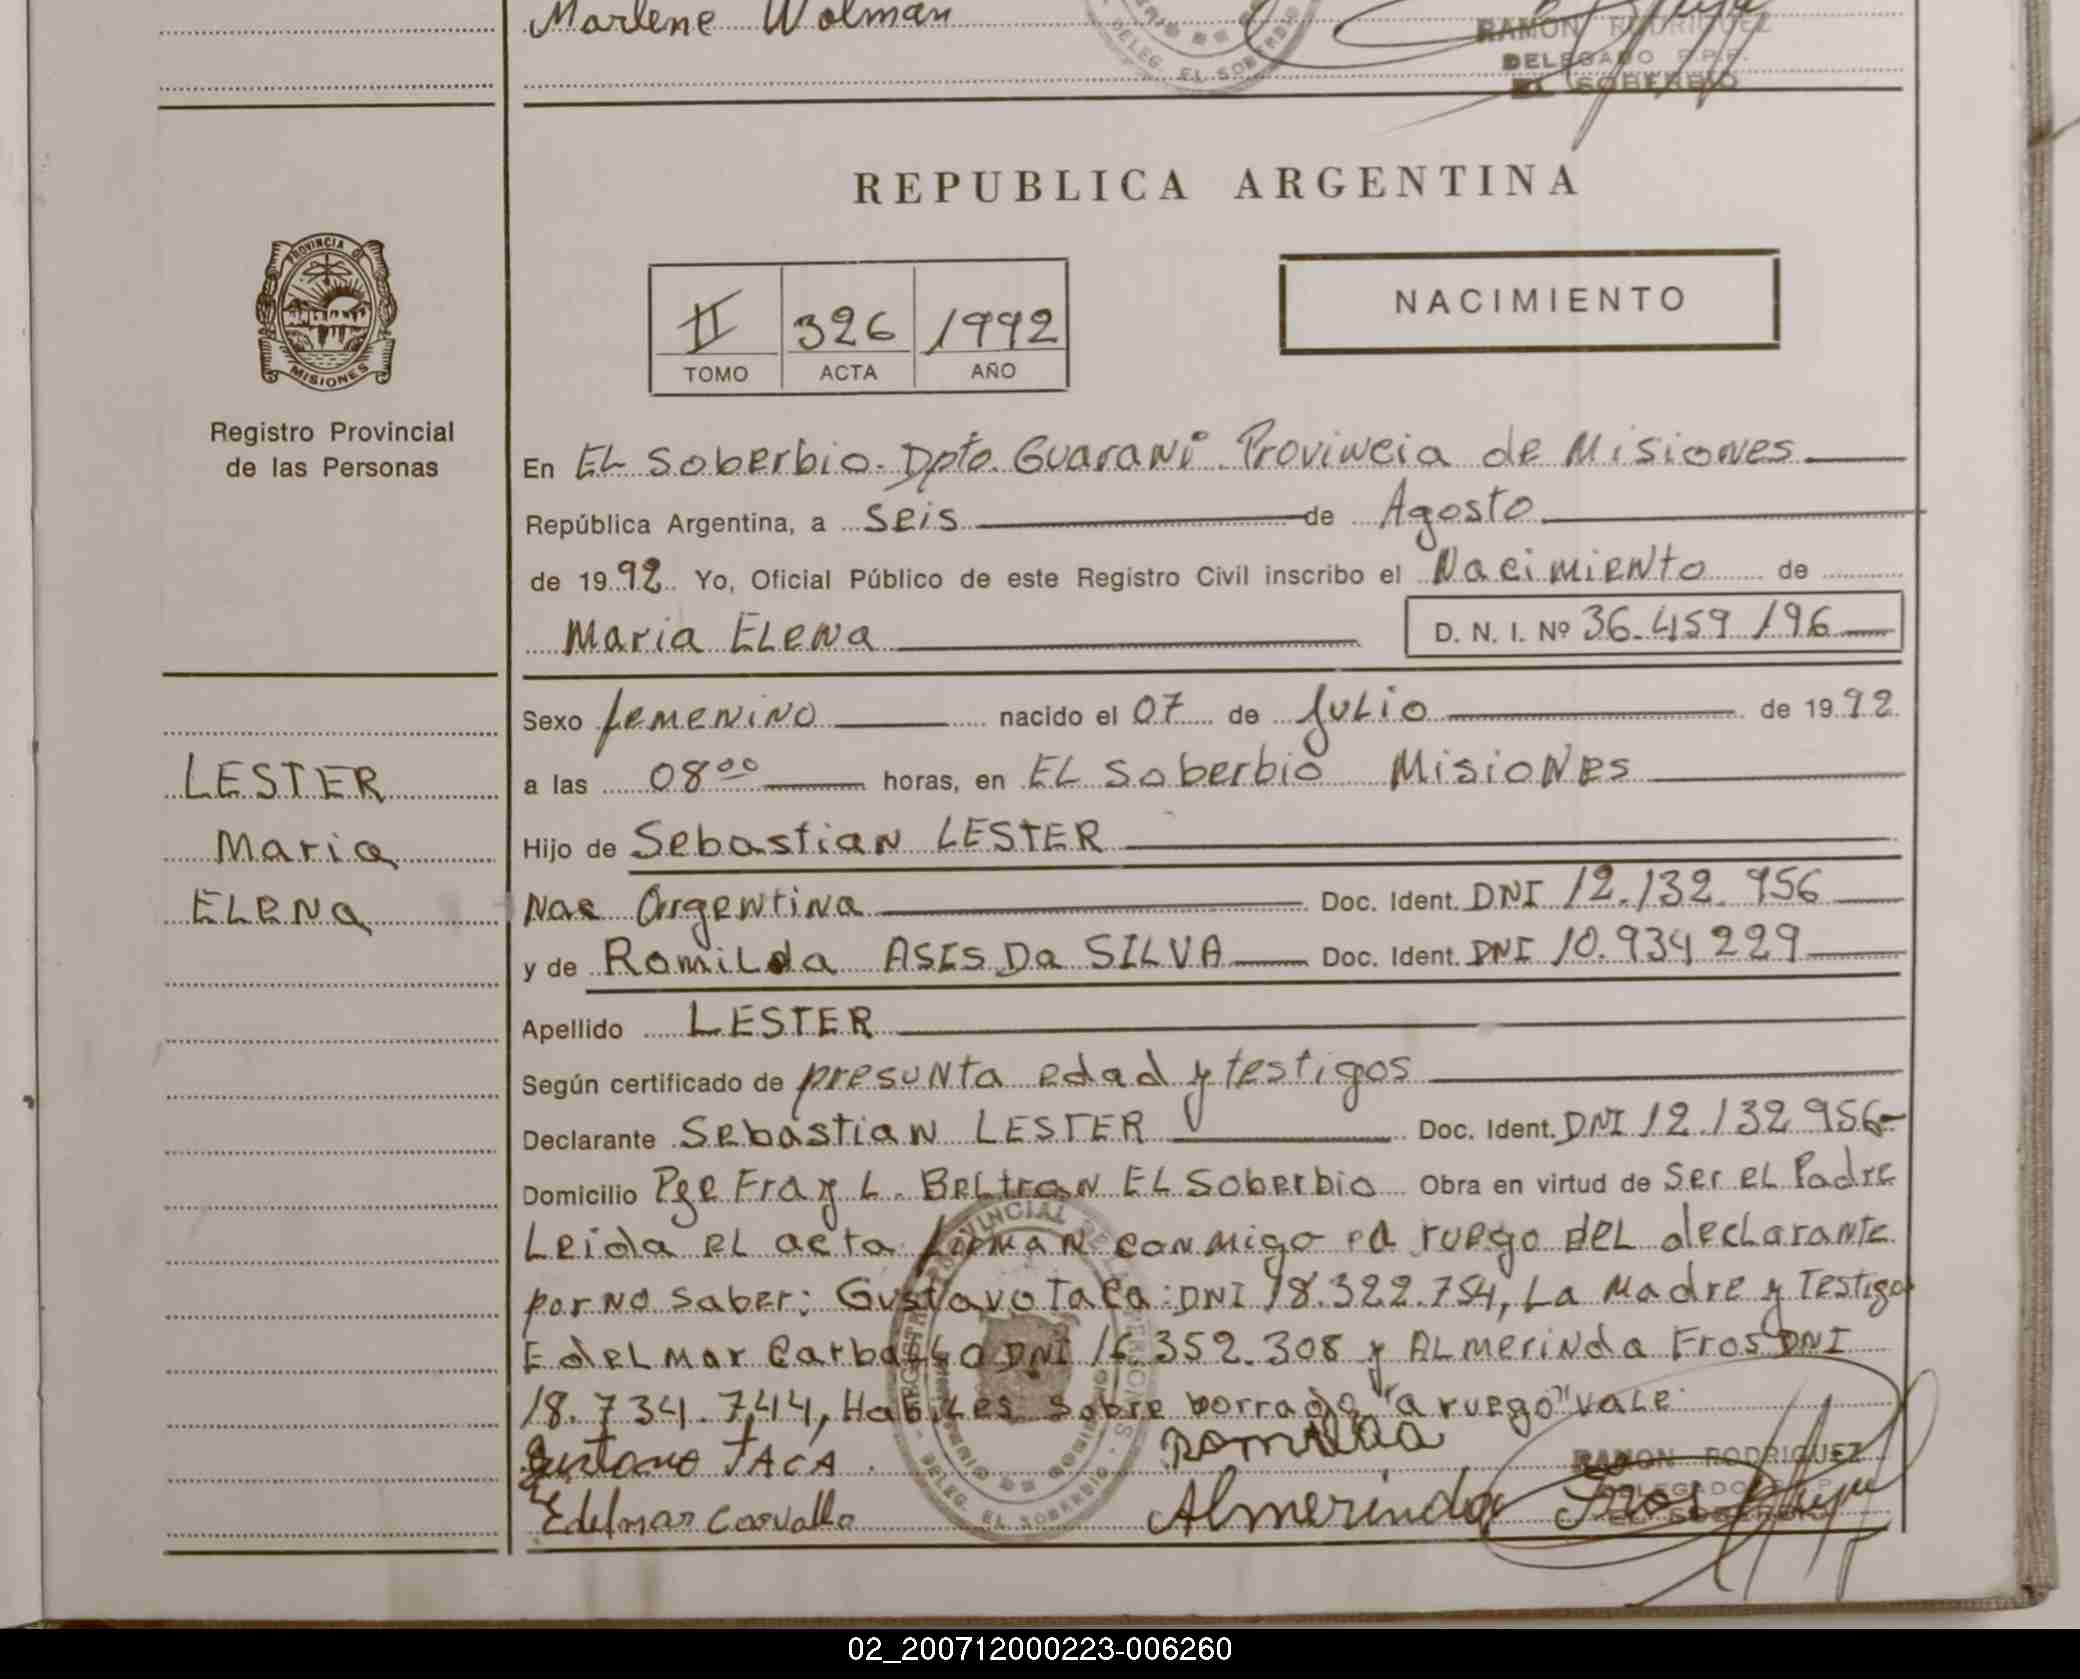 Marlene Wolman
DELEG. EL SOBERBIO
RAMON RODRIGUEZ
DELEGADO R.P.P.
EL SOBERBIO
REPUBLICA ARGENTINA
PROVINCIA DE
MISIONES
NACIMIENTO
II 326 1992
TOMO ACTA AÑO
Registro Provincial
de las Personas
En EL Soberbio. Dpto. Guarani Provincia de Misiones
República Argentina, a seis de Agosto
de 1992 Yo, Oficial Público de este Registro Civil inscribo el Nacimiento de
Maria ELena D. N. I. Nº 36.459 196
Sexo femenino nacido el 07 de Julio de 1992
LESTER
Maria
ELena
a las 08 00 horas, en EL Soberbio Misiones
Hijo de Sebastian LESTER
Nac Argentina Doc. Ident. DNI 12.132.956
y de Romilda ASIS Da SILVA Doc. Ident. DNI 10.934 229
Apellido LESTER
Según certificado de presunta edad y testigos
Declarante Sebastian LESTER Doc. Ident. DNI 12.132 956
Domicilio Pje Fray L. Beltran EL Soberbio Obra en virtud de Ser el Padre
Leida el acta firman conmigo a ruego del declarante
por no saber: Gustavo Taca: DNI 18.322.754, La Madre y Testigo
Edelmar Carballo DNI 16.352.308 y ALmerinda Fros DNI
18.734.744, Habiles sobre borrado "a ruego" vale
Gustavo TACA Romilda
RAMON RODRIGUEZ
DELEGADO R.P.P.
EL SOBERBIO
Edelmar Carvallo Almerinda Fros
DELEG. EL SOBERBIO
02_200712000223-006260